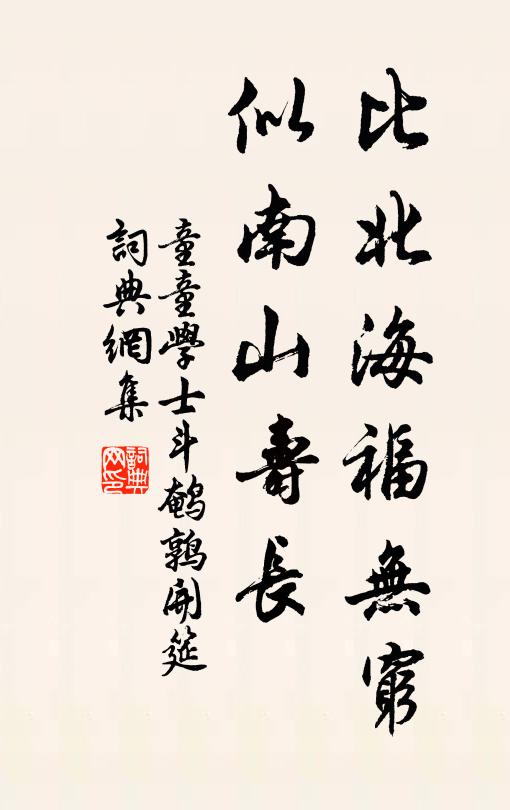 比北海福無窮
似南山壽長
童童學士斗鹌鹑開筵
詞典網集
詞典网印